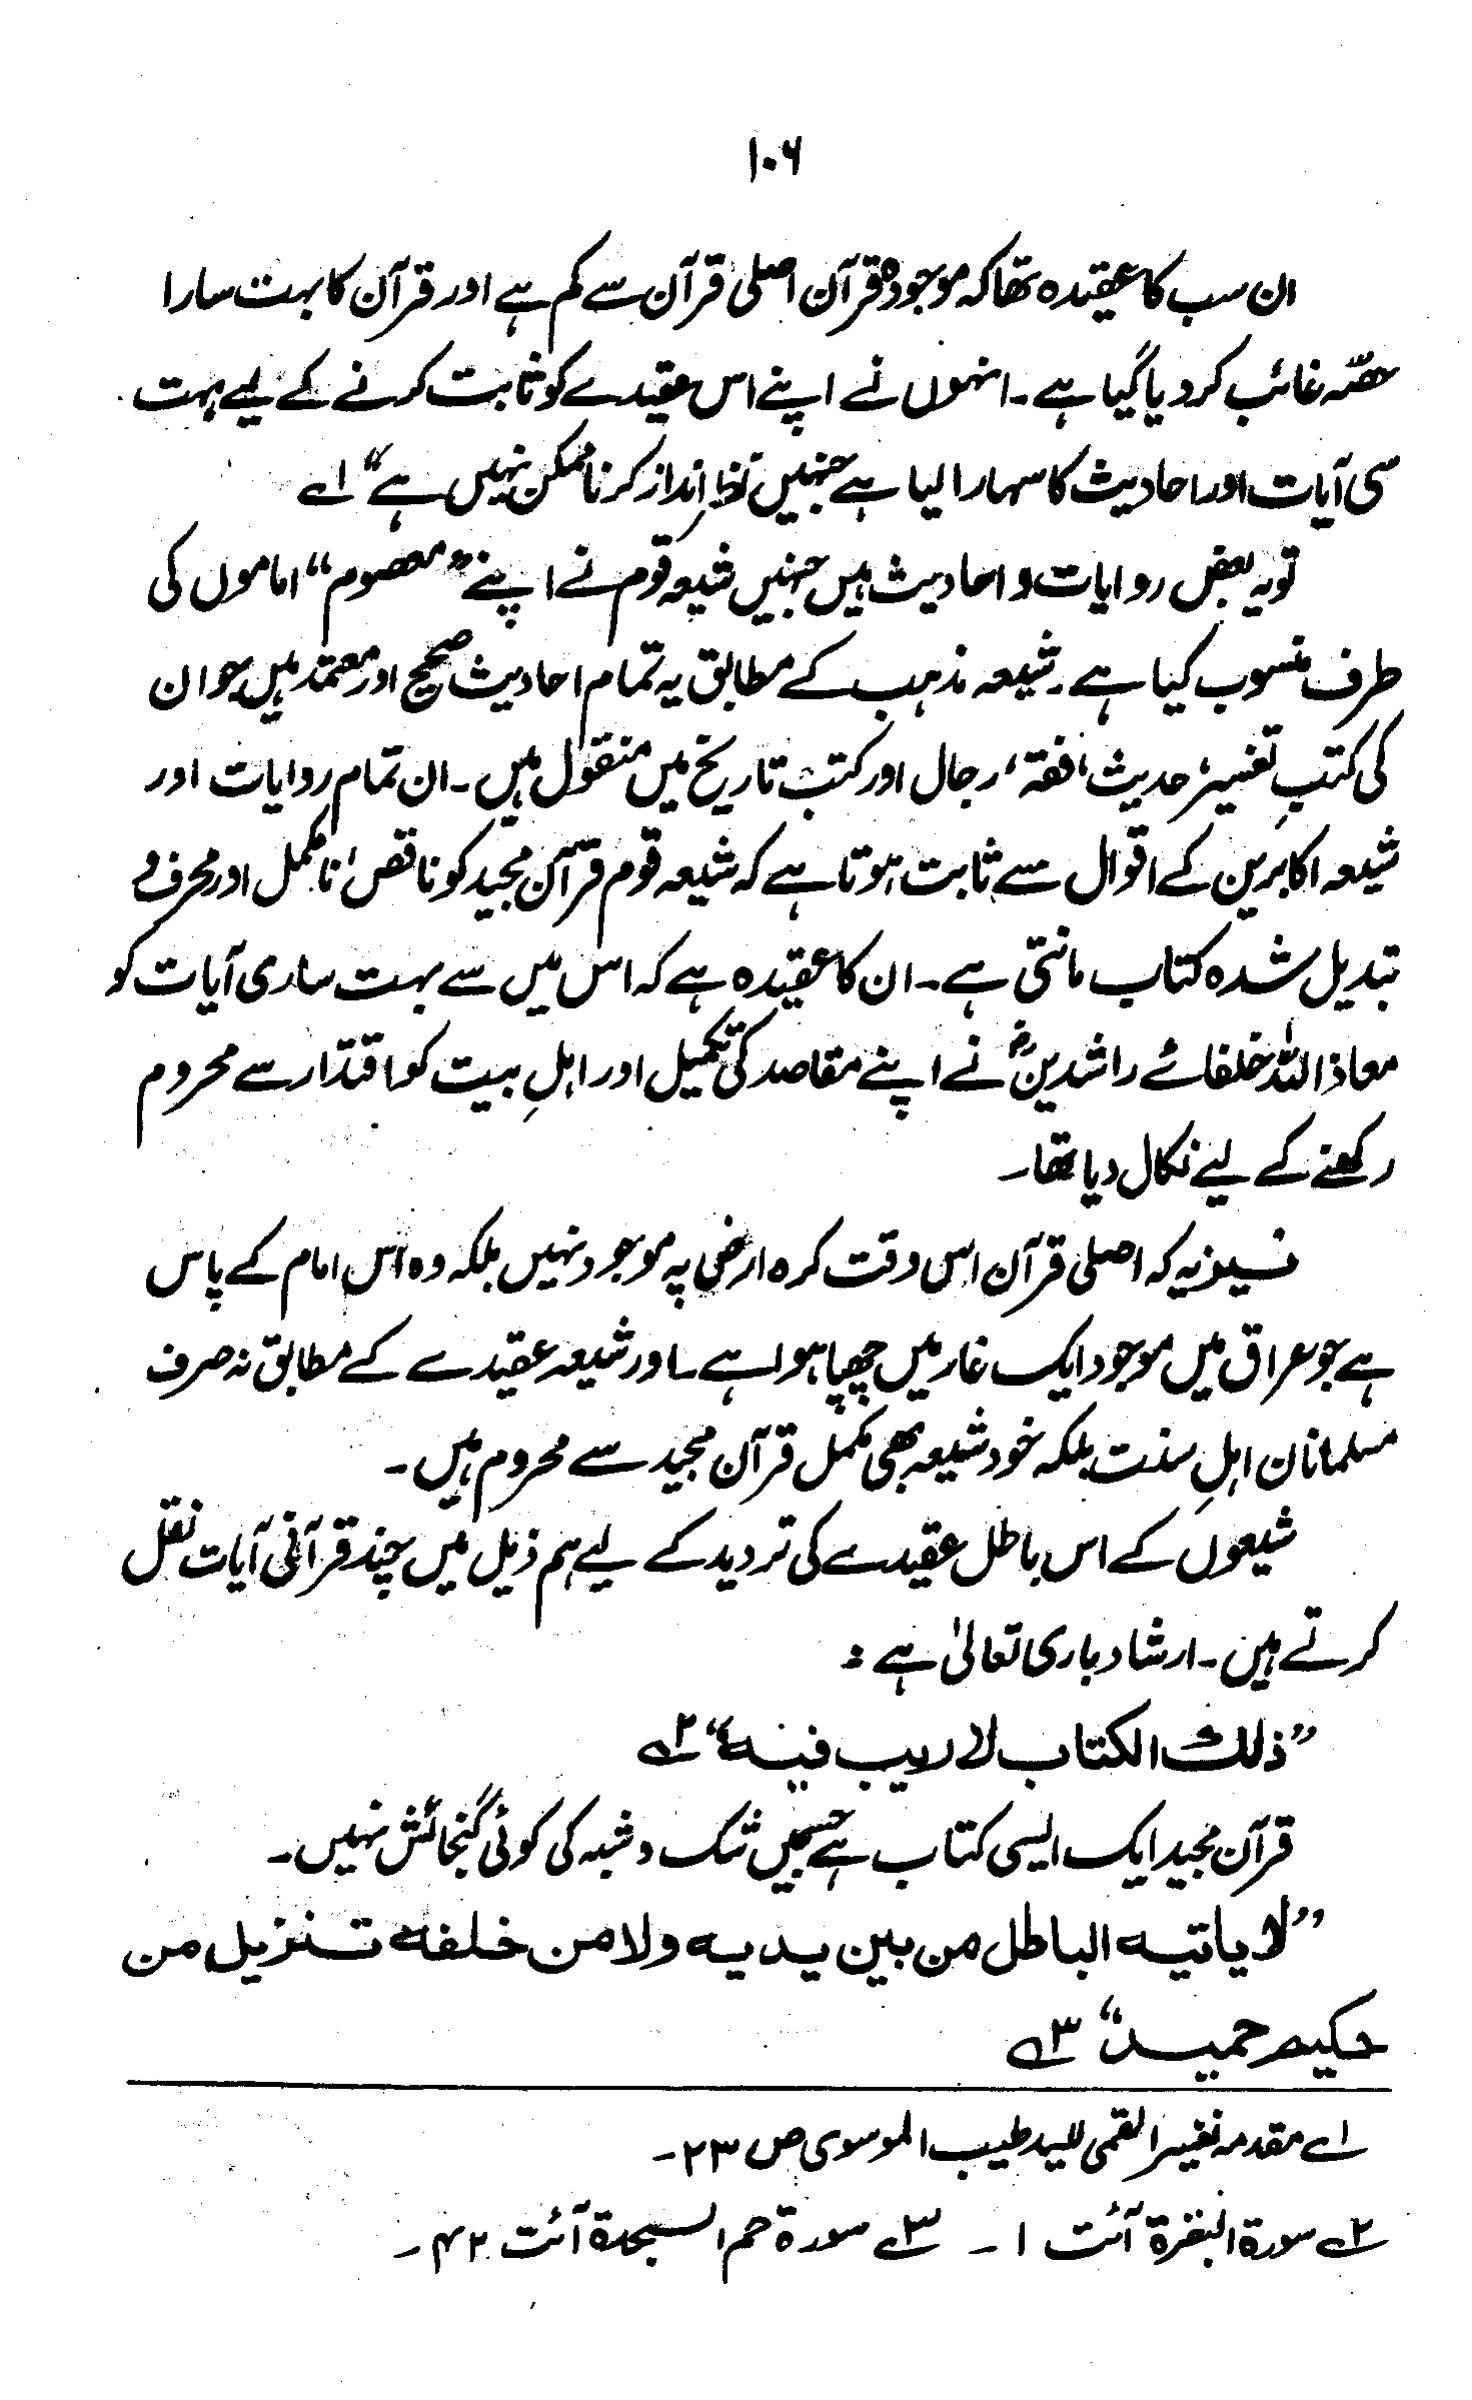 ۱۰۶
ان سب کا عقیدہ تھا کہ موجودہ قرآن اصلی قرآن سے کم ہے اور قرآن کا بہت سارا
حصّہ غائب کردیا گیا ہے۔ انہوں نے اپنے اس عقیدے کو ثابت کرنے کے لیے بہت
سی آیات اور احادیث کا سہارا لیا ہے جنہیں نظر انداز کرنا ممکن نہیں ہے“ ۱ے
تو یہ بعض روایات و احادیث ہیں جنہیں شیعہ قوم نے اپنے ”معصوم“ اماموں کی
طرف منسوب کیا ہے۔ شیعہ مذہب کے مطابق یہ تمام احادیث صحیح اور معتمد ہیں جو ان
کی کتبِ تفسیر، حدیث، فقہ، رجال اور کتب تاریخ میں منقول ہیں۔ ان تمام روایات اور
شیعہ اکابرین کے اقوال سے ثابت ہوتا ہے کہ شیعہ قوم قرآن مجید کو ناقص، نامکمل اور محرف و
تبدیل شدہ کتاب مانتی ہے۔ ان کا عقیدہ ہے کہ اس میں سے بہت ساری آیات کو
معاذ اللہ خلفائے راشدینؓ نے اپنے مقاصد کی تکمیل اور اہلِ بیت کو اقتدار سے محروم
رکھنے کے لیے نکال دیا تھا۔
نیز یہ کہ اصلی قرآن اس وقت کرہ ارضی پہ موجود نہیں بلکہ وہ اس امام کے پاس
ہے جو عراق میں موجود ایک غار میں چھپا ہوا ہے۔ اور شیعہ عقیدے کے مطابق نہ صرف
مسلمانان اہلِ سنت بلکہ خود شیعہ بھی مکمل قرآن مجید سے محروم ہیں۔
شیعوں کے اس باطل عقیدے کی تردید کے لیے ہم ذیل میں چند قرآنی آیات نقل
کرتے ہیں۔ ارشاد باری تعالیٰ ہے :
”ذلك الكتاب لا ريب فيه“ ۲ے
قرآن مجید ایک ایسی کتاب ہے جس میں شک و شبہ کی کوئی گنجائش نہیں۔
”لا ياتيه الباطل من بين يديه ولا من خلفه تنزيل من
حكيم حميد“ ۳ے
۱ے مقدمہ تفسیر القمی للسید طیب الموسوی ص ۲۳۔
۲ے سورۃ البقرۃ آئت ۱۔ ۳ے سورۃ حم السجدۃ آئت ۴۲۔